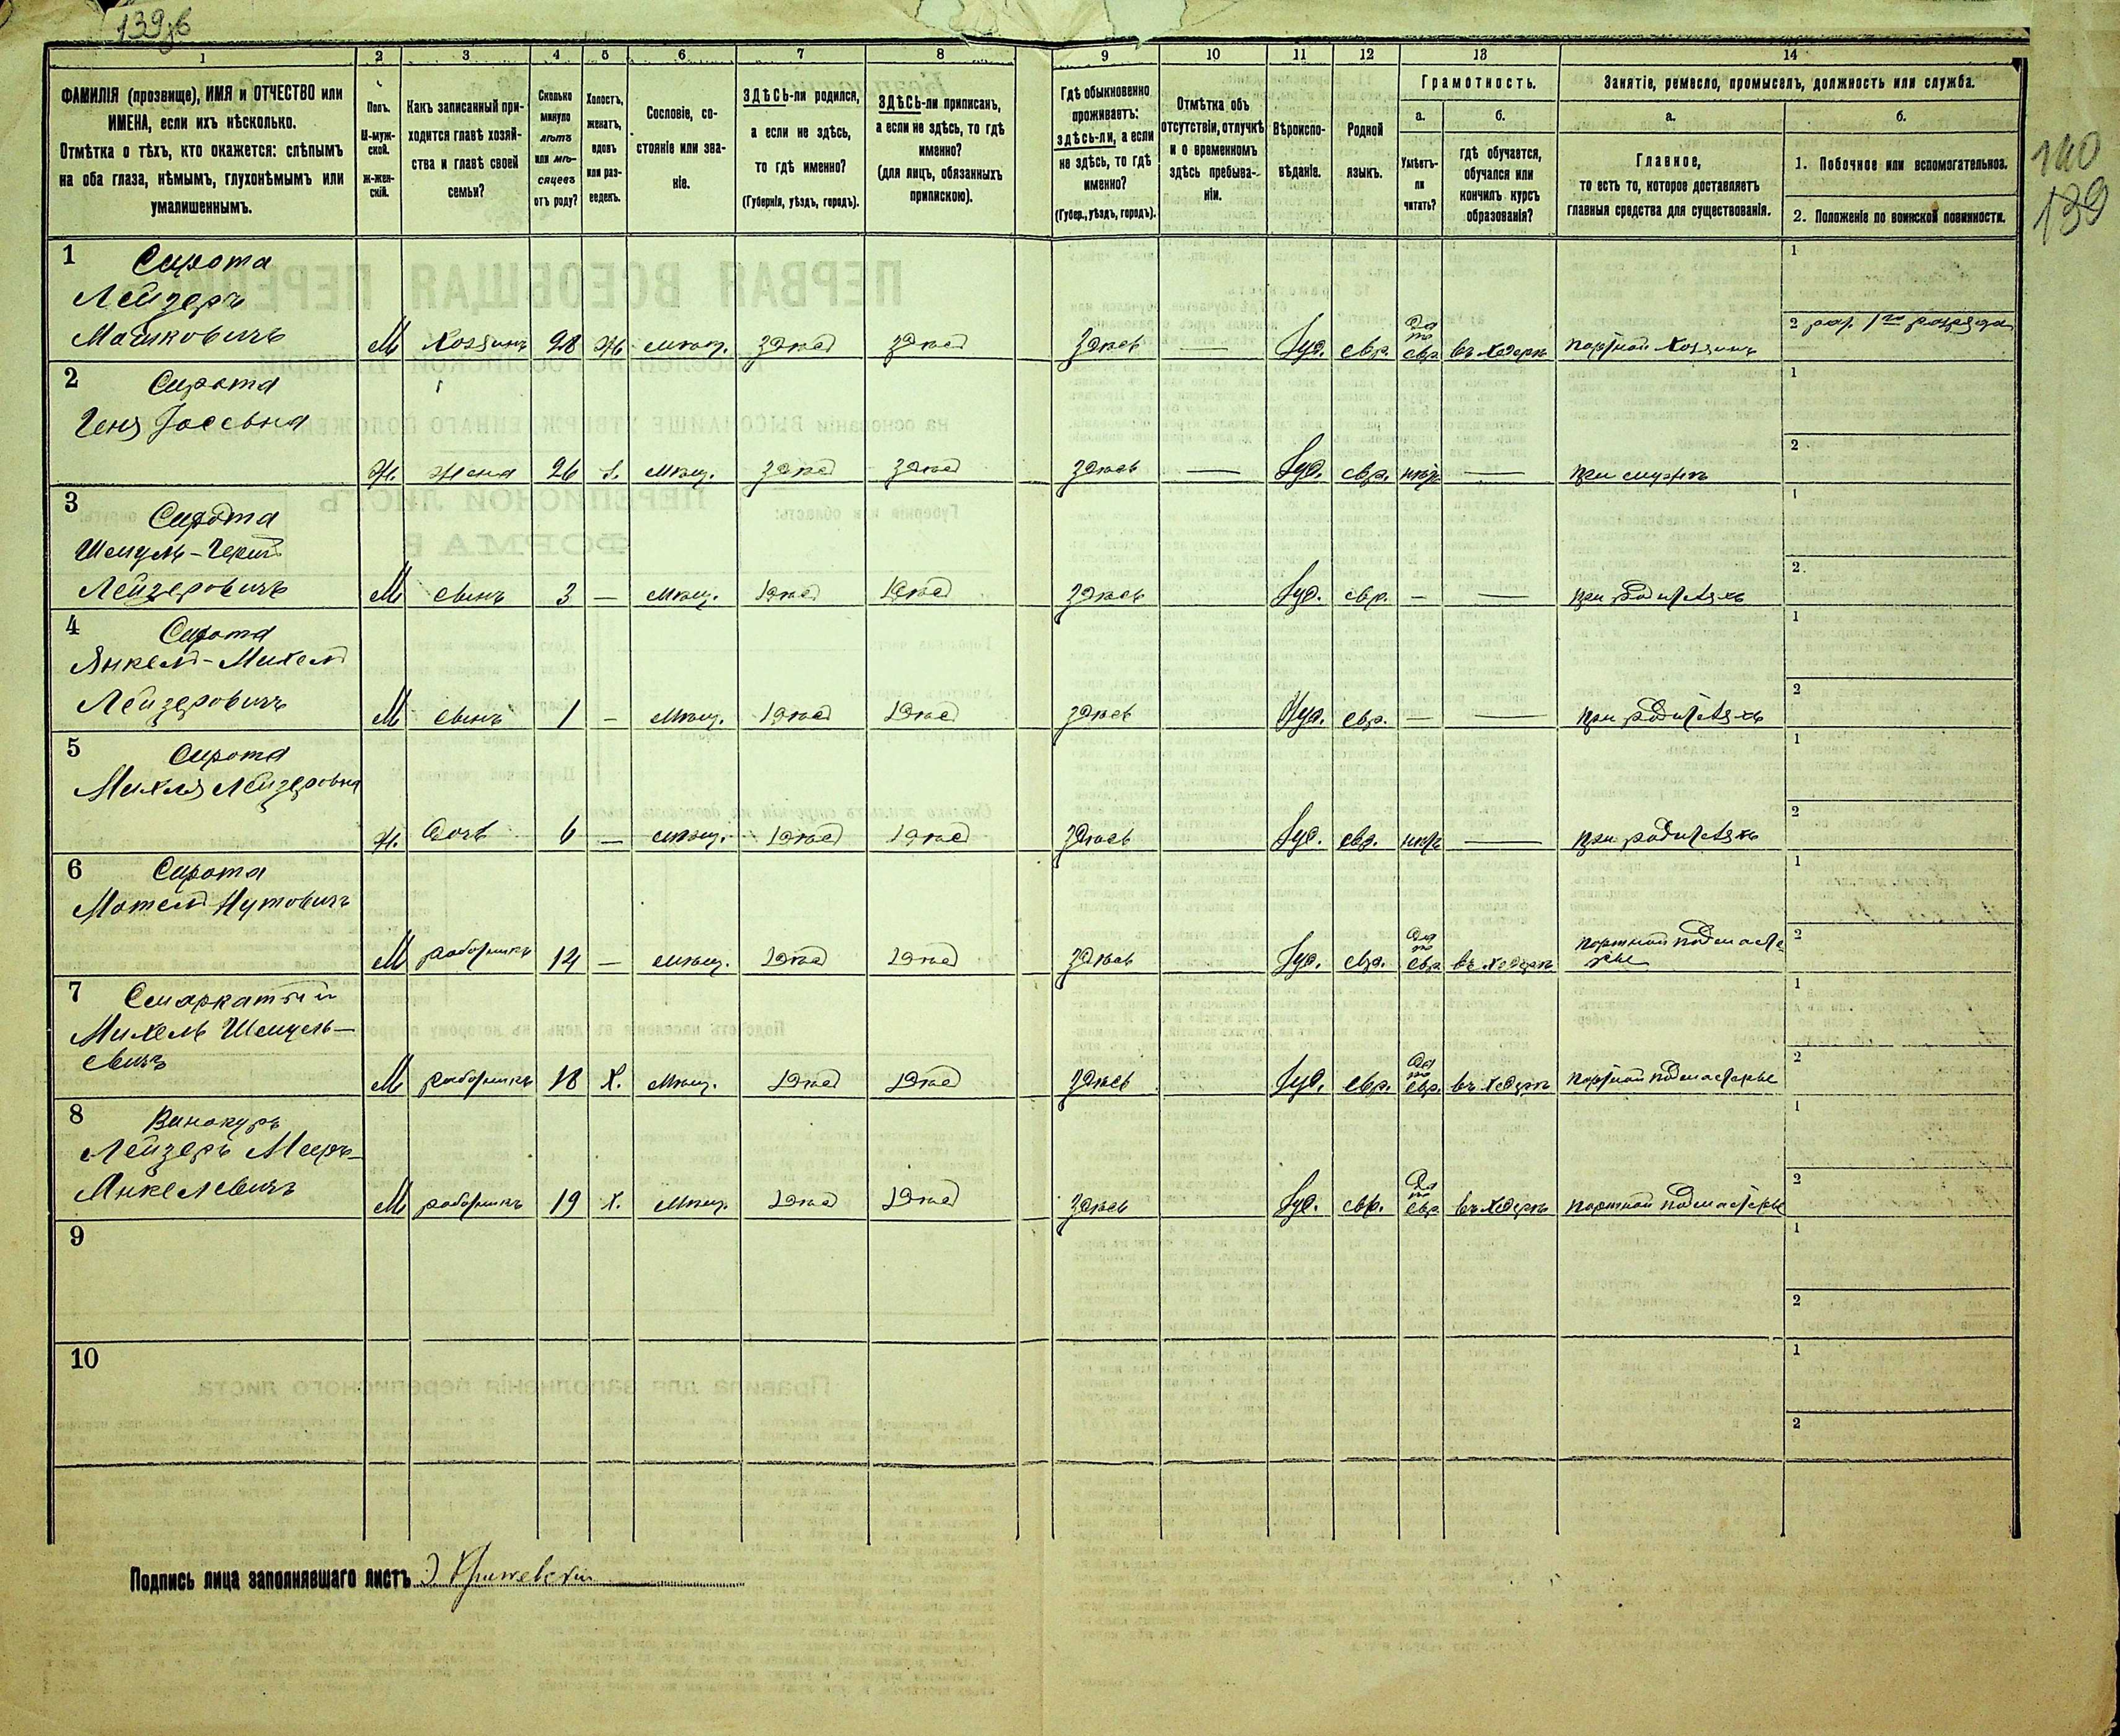 139об
140
139
1 2 3 4 5 6 7 8 9 10 11 12 13 14
ФАМИЛІЯ (прозвище), ИМЯ и ОТЧЕСТВО или
ИМЕНА, если ихъ нѣсколько.
Отмѣтка о тѣхъ, кто окажется: слѣпымъ
на оба глаза, нѣмымъ, глухонѣмымъ или
умалишеннымъ.
Полъ.
М-муж-
ской.
Ж-жен-
скій.
Какъ записанный при-
ходится главѣ хозяй-
ства и главѣ своей
семьи?
Сколько
минуло
лѣтъ
или мѣ-
сяцевъ
отъ роду?
Холостъ,
женатъ,
вдовъ
или раз-
веденъ.
Сословіе, со-
стояніе или зва-
ніе.
ЗДѢСЬ-ли родился,
а если не здѣсь,
то гдѣ именно?
(Губернія, уѣздъ, городъ).
ЗДѢСЬ-ли приписанъ,
а если не здѣсь, то гдѣ
именно?
(для лицъ, обязанныхъ
припискою).
Гдѣ обыкновенно
проживаетъ:
здѣсь-ли, а если
не здѣсь, то гдѣ
именно?
(Губер., уѣздъ, городъ).
Отмѣтка объ
отсутствіи, отлучкѣ
и о временномъ
здѣсь пребыва-
ніи.
Вѣроиспо-
вѣданіе.
Родной
языкъ.
Грамотность.
а.
Умѣетъ-
ли
читать?
б.
гдѣ обучается,
обучался или
кончилъ курсъ
образованія?
Занятіе, ремесло, промыселъ, должность или служба.
а.
Главное,
то есть то, которое доставляетъ
главныя средства для существованія.
б.
1. Побочное или вспомогательное.
2. Положеніе по воинской повинности.
1 Сирота 1
Лейзеръ
Машковичъ М Хозяинъ 28 ж мѣщ. здѣсь здѣсь здѣсь — Іуд. евр. да по евр въ хедерѣ портной хозяинъ 2 рат. 1го разряда
2 Сирота 1
Геня Іосьвна 2
Ж. жена 26 з. мѣщ. здѣсь здѣсь здѣсь — Іуд. евр. нѣтъ — при мужѣ
3 Сирота 1
Шмуль-Герш
Лейзеровичъ М сынъ 3 — мѣщ. здѣсь здѣсь здѣсь Іуд. евр. — — при родителяхъ 2
4 Сирота 1
Янкель-Михель
Лейзеровичъ М сынъ 1 — мѣщ. здѣсь здѣсь здѣсь Іуд. евр. — — при родителяхъ 2
5 Сирота 1
Михля Лейзеровна 2
Ж. дочь 6 — мѣщ. здѣсь здѣсь здѣсь Іуд. евр. нѣтъ — при родителяхъ
6 Сирота 1
Мотель Нутовичъ
М работникъ 14 — мѣщ. здѣсь здѣсь здѣсь Іуд. евр. да по евр въ хедерѣ портной подмастерье 2
7 Смаркатый 1
Михель Шмуль-
евичъ М работникъ 18 х. мѣщ. здѣсь здѣсь здѣсь Іуд. евр. да по евр. въ хедерѣ портной подмастерье 2
8 Винокуръ 1
Лейзеръ Мееръ-
Янкелевичъ М работникъ 19 х. мѣщ. здѣсь здѣсь здѣсь Іуд. евр. да по евр въ хедерѣ портной подмастерье 2
9 1
2
10 1
2
Подпись лица заполнявшаго листъ